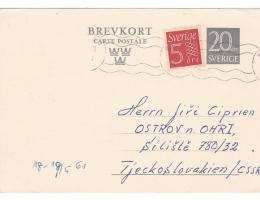 BREVKORT
CARTE POSTALE
Sverige
5
öre
20 ÖRE
SVERIGE
Herrn Jiří Ciprien
OSTROV n OHŘI,
Siliště 780/32
Tjeckoslovakien/CSSR
18-19/5 61